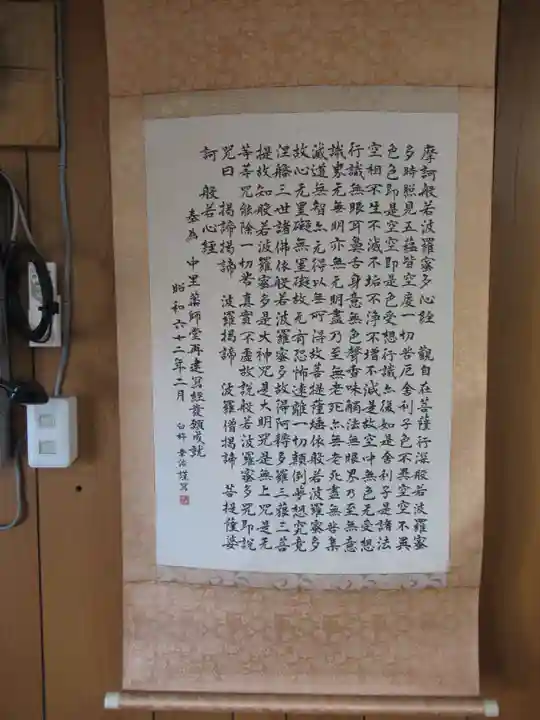 摩訶般若波羅蜜多心経 観自在菩薩行深般若波羅蜜
多時照見五蘊皆空度一切苦厄舎利子色不異空空不異
色色即是空空即是色受想行識亦復如是舎利子是諸法
空相不生不滅不垢不浄不増不減是故空中無色無受想
行識無眼耳鼻舌身意無色聲香味觸法無眼界乃至無意
識界无無明亦無无明盡乃至無老死亦無老死盡無苦集
滅道無智亦无得以無所得故菩提薩埵依般若波羅蜜多
故心无罣礙無罣礙故无有恐怖遠離一切顛倒夢想究竟
涅槃三世諸佛依般若波羅蜜多故得阿耨多羅三藐三菩
提故知般若波羅蜜多是大神咒是大明咒是無上咒是无
等等咒能除一切苦真實不虚故説般若波羅蜜多咒即説
咒曰 掲諦掲諦 波羅掲諦 波羅僧掲諦 菩提薩婆
訶 般若心経
奉為 中里薬師堂再建写経発願成就
昭和六十二年二月 謹寫